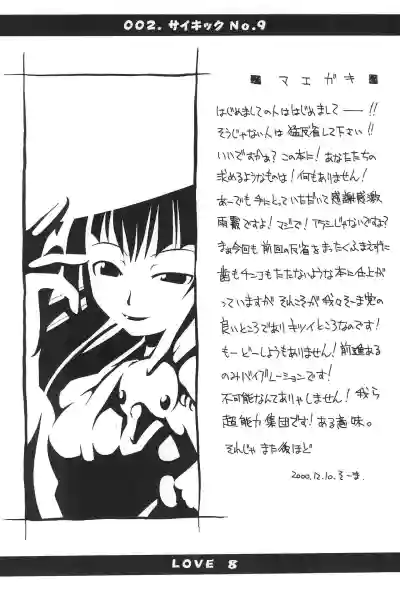 002. サイキック No.9
マエガキ
はじめましての人ははじめまして——!!
そうじゃない人は猛反省して下さい!!
いいですかぁ?この本に!あなたたちの
求めるようなものは!何もありません!
あーでも手にとっていただいて感謝感激
雨霰ですよ!マジで!イヤミじゃないですよ?
まぁ今回も前回の反省をまったくふまえずに
歯もチンコもたたないような本に仕上が
っていますがそれこそが我々そーま党の
良いところでありキツイところなのです!
もーどーしようもありません!前進ある
のみバイブレーションです!
不可能なんてありゃしません!我ら
超能力集団です!ある意味。
それじゃまた後ほど
2000.12.10. そーま
LOVE 8